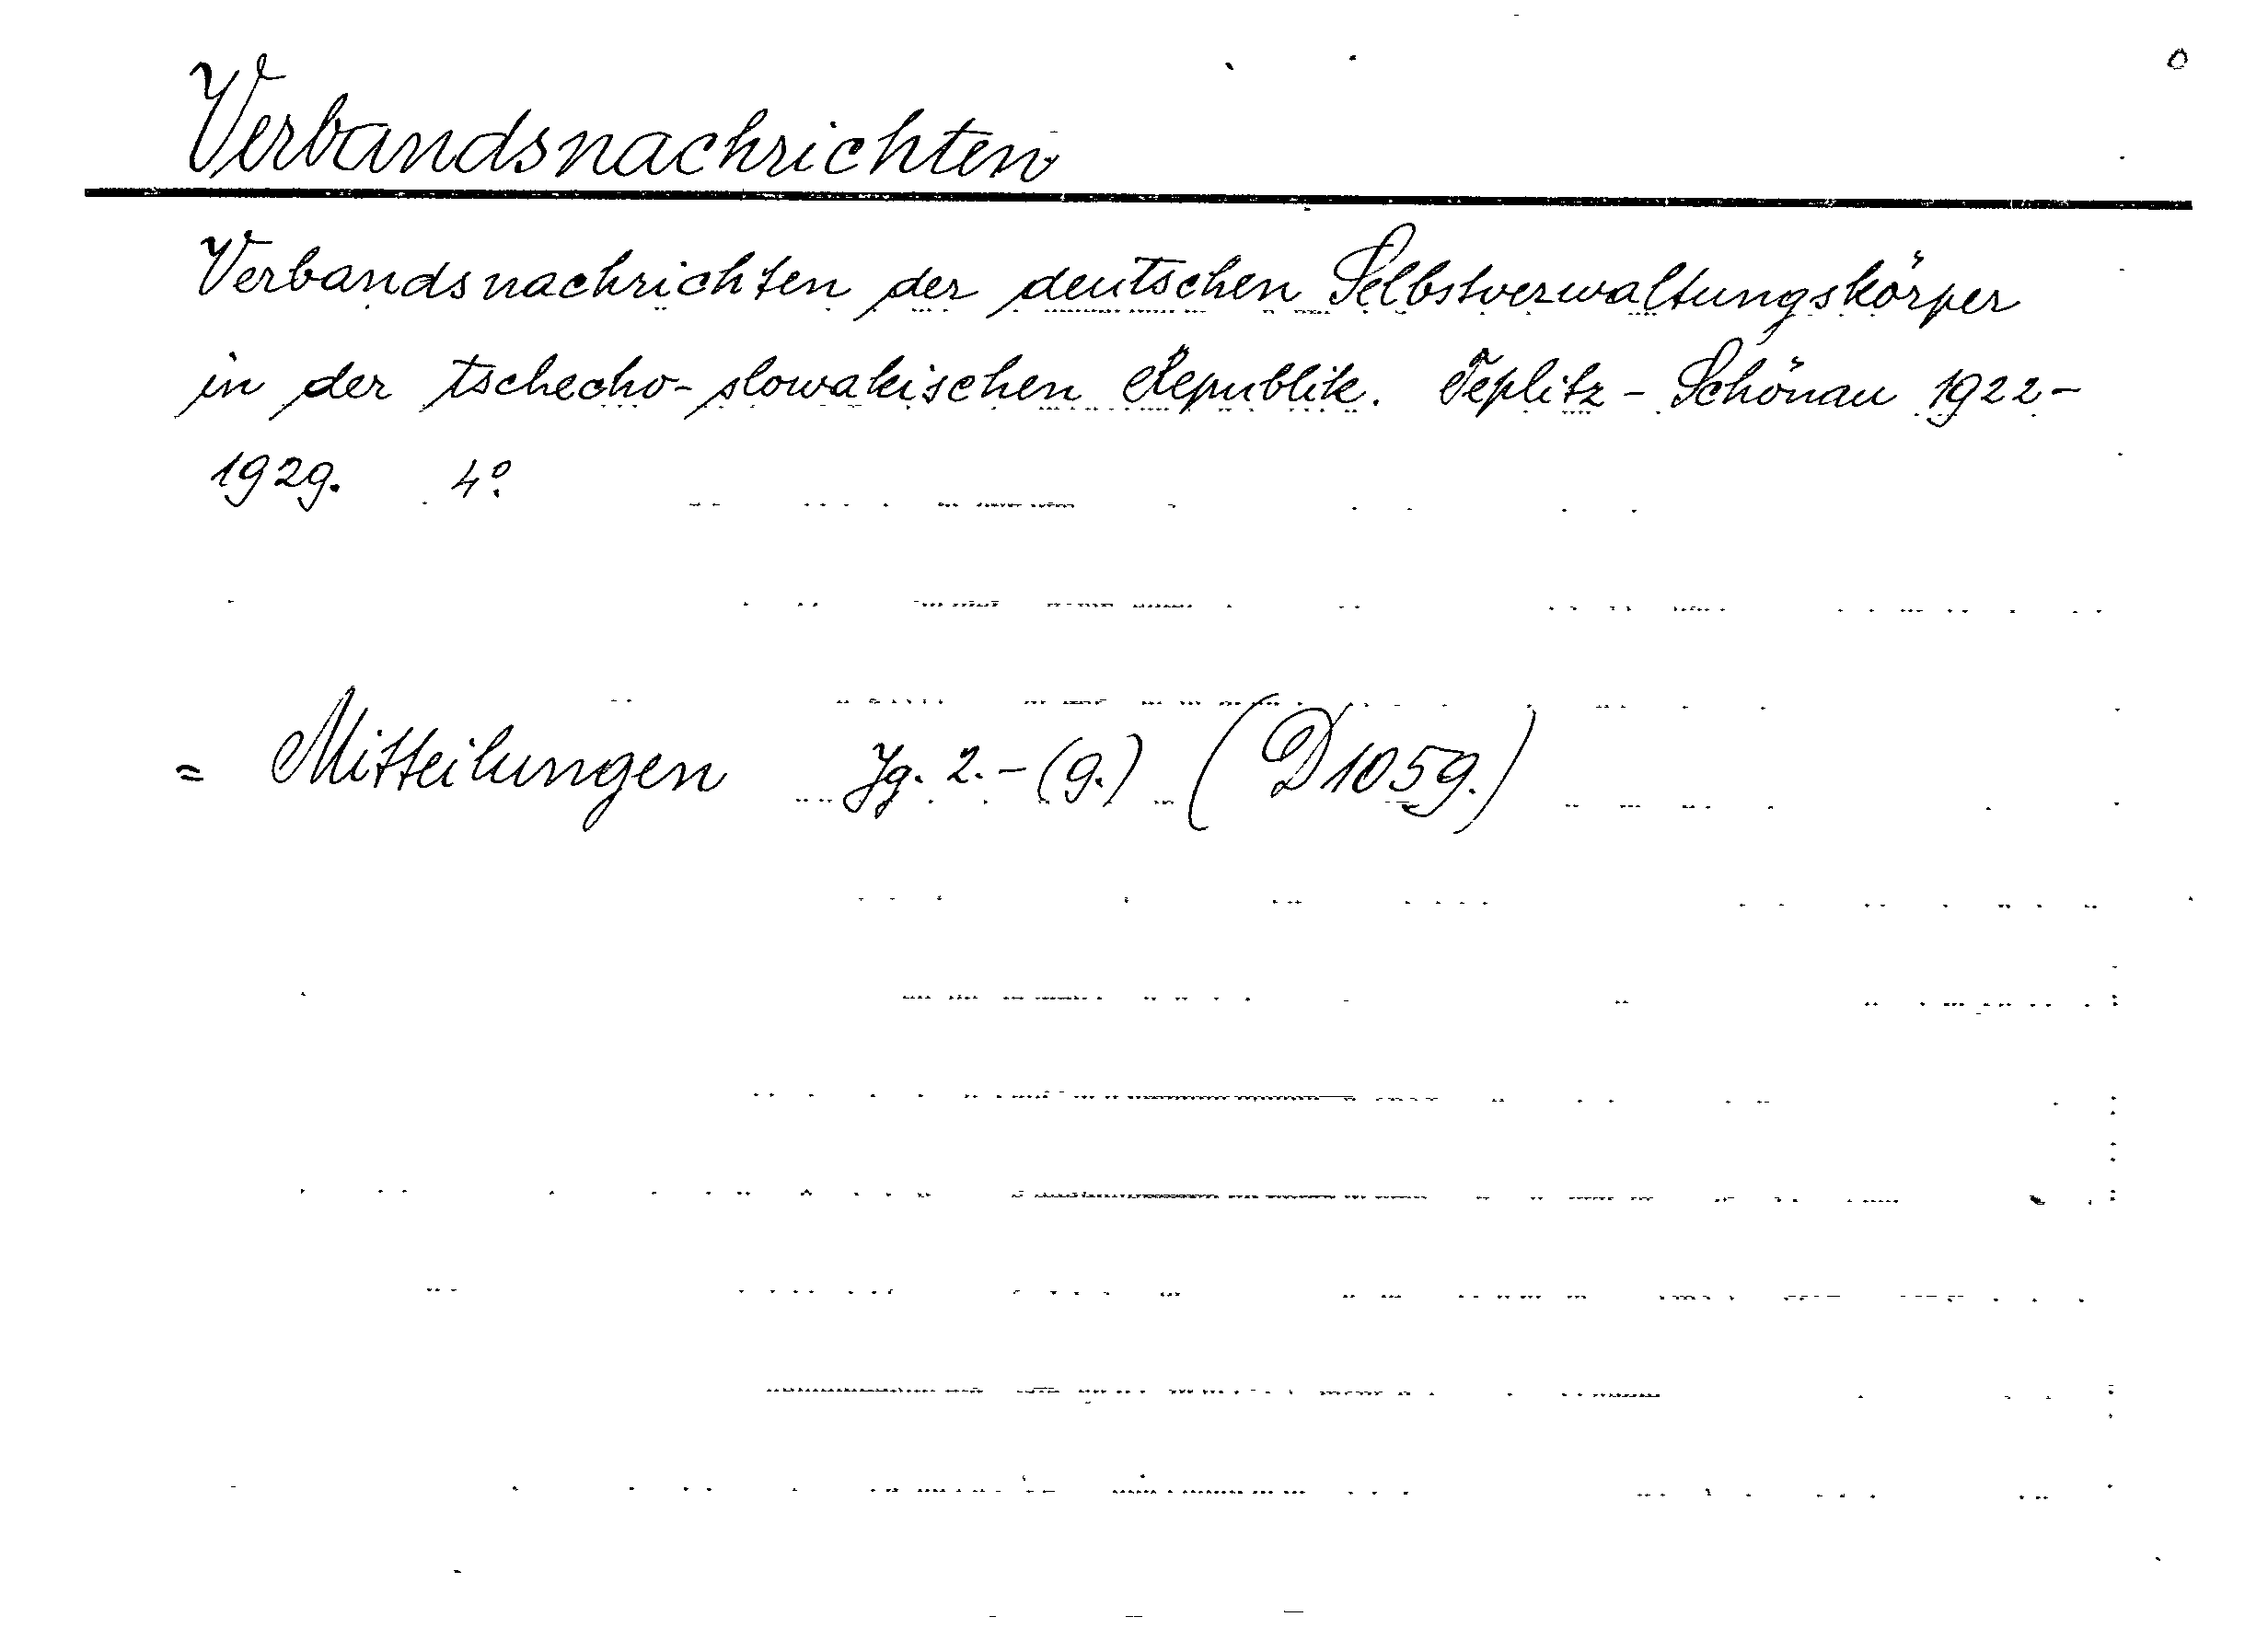 Verbandsnachrichten
Verbandsnachrichten der deutschen Selbstverwaltungskörper
in der tschecho-slowakischen Republik. Teplitz-Schönau 1922-
1929. 4°.
= Mitteilungen Jg. 2.-(9.) (D1059.)